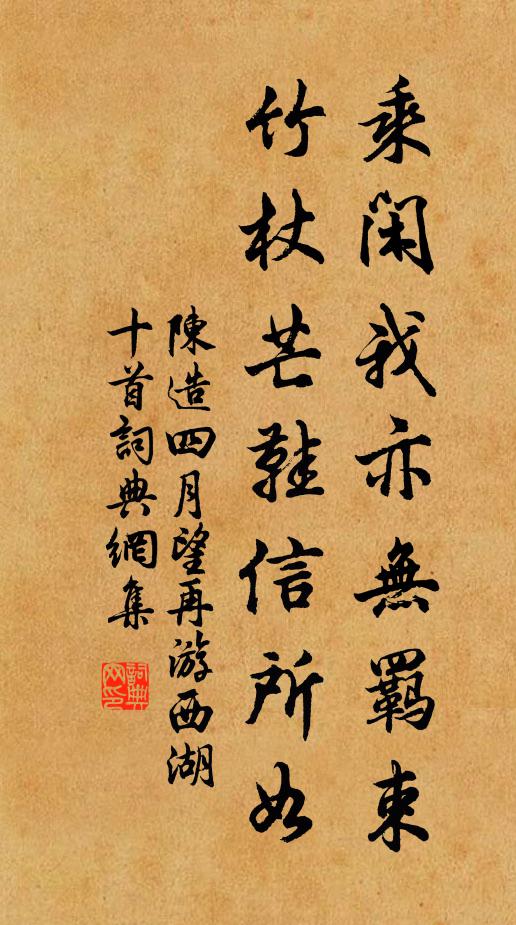 乘閑我亦無羈束
竹杖芒鞋信所如
陳造四月望再游西湖
十首詞典網集
詞典网印